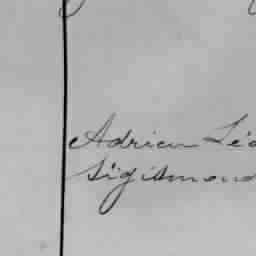 Adrien Léo
Sigismond